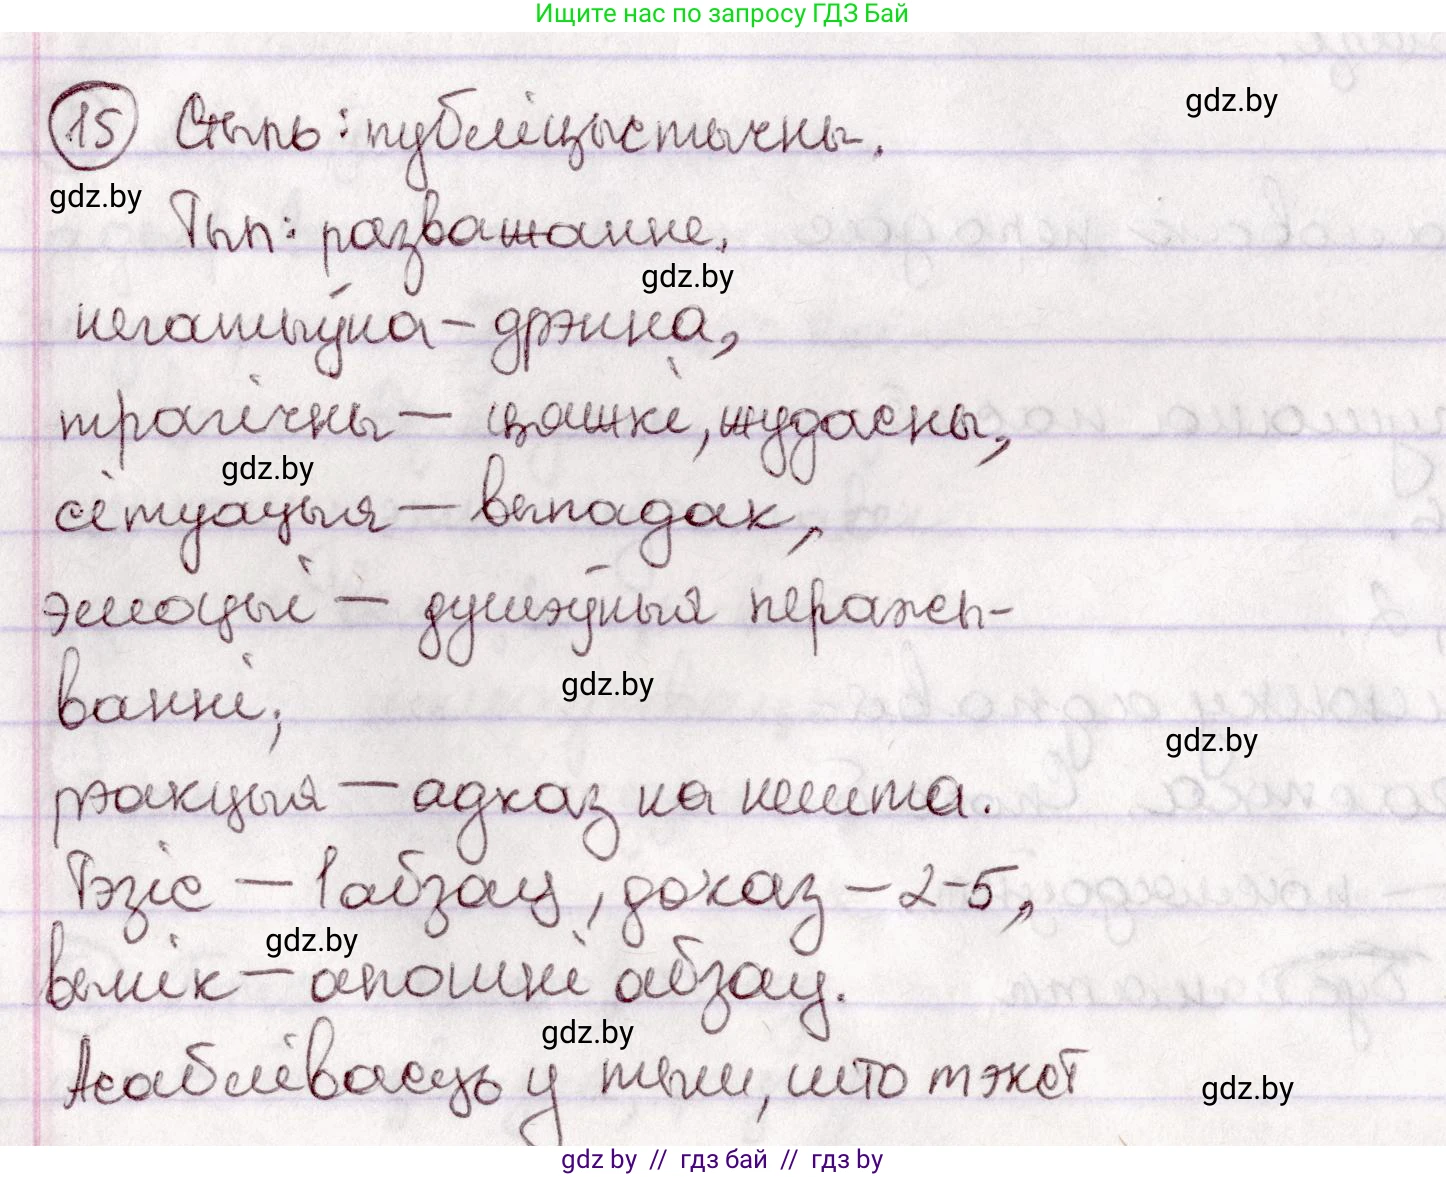 Ищите нас по запросу ГДЗ Бай
gdz.by
15 Стыль: публіцыстычны.
gdz.by
Тып: разважанне.
gdz.by
негатыўна – дрэнна,
трагічны – цяжкі, жудасны,
gdz.by
сітуацыя – выпадак,
эмоцыі – душэўныя перажы-
ванні;
gdz.by
gdz.by
рэакцыя – адказ на нешта.
Тэзіс – 1 абзац, доказ – 2-5,
gdz.by
вынік – апошні абзац.
gdz.by
Асаблівасць у тым, што тэкст
gdz.by
gdz by // гдз бай // гдз by